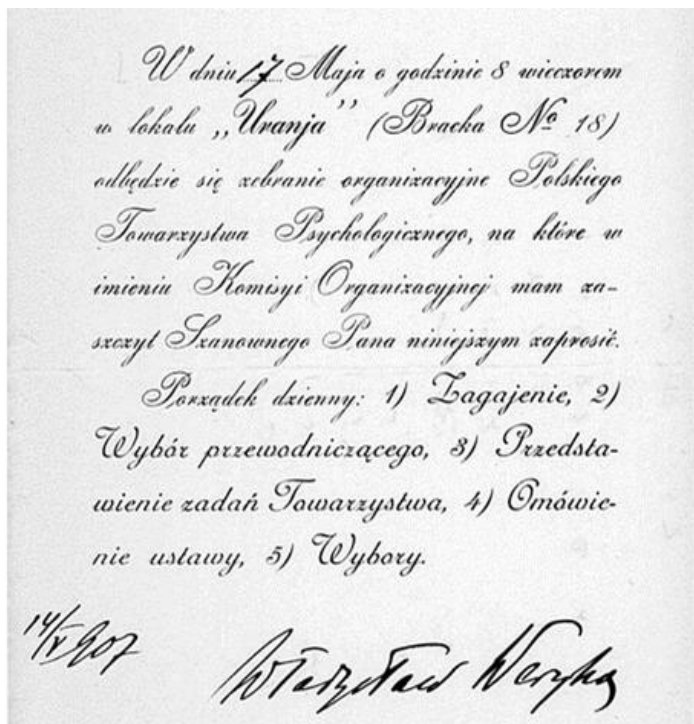 W dniu 17 Maja o godzinie 8 wieczorem
w lokalu „Uranja” (Bracka № 18)
odbędzie się zebranie organizacyjne Polskiego
Towarzystwa Psychologicznego, na które w
imieniu Komisyi Organizacyjnej mam za-
szczyt Szanownego Pana niniejszym zaprosić.
Porządek dzienny: 1) Zagajenie, 2)
Wybór przewodniczącego, 3) Przedsta-
wienie zadań Towarzystwa, 4) Omówie-
nie ustawy, 5) Wybory.
14/V 907
Władysław Weryho